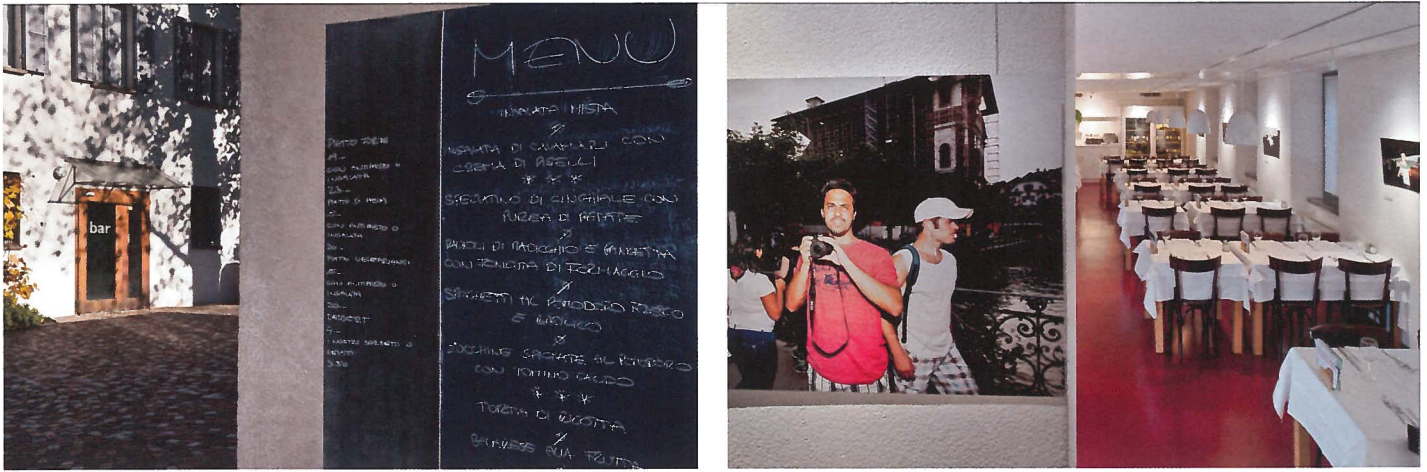 bar
PIATTO FORTE
CON ANTIPASTO O
INSALATA
23.-
PIATTO DI PASTA
CON ANTIPASTO O
INSALATA
20.-
PIATTO VEGETARIANO
CON ANTIPASTO O
INSALATA
20.-
DESSERT
I NOSTRI SORBETTO O
GELATO
3.50
MENU
INSALATA MISTA
INSALATA DI CALAMARI CON
CREMA DI PISELLI
* * *
SPEZZATINO DI CINGHIALE CON
PUREA DI PATATE
RAVIOLI DI RADICCHIO E PANCETTA
CON FONDUTA DI FORMAGGIO
SPAGHETTI AL POMODORO FRESCO
E BASILICO
ZUCCHINE SPADELLATE AL POMODORO
CON TOMINO CALDO
* * *
TORTA DI RICOTTA
BAVARESE ALLA FRUTTA